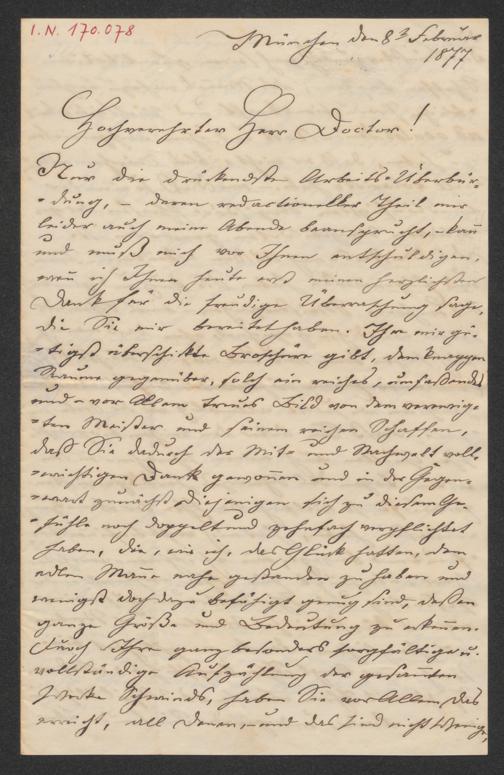 I. N. 170.078
München den 8t Februar
1877
Hochverehrter Herr Doctor!
Nur die drückendste Arbeits-Überbür-
-dung, – deren redactioneller Theil mir
leider auch meine Abende beansprucht, – kann
und muß mich vor Ihnen entschuldigen,
wenn ich Ihnen heute erst meinen herzlichsten
Dank für die freudige Überraschung sage,
die Sie mir bereitet haben. Ihre mir gü-
-tigst überschikte Broschüre gibt, dem knappen
Raume gegenüber, solch ein reiches, umfassendes
und – vor Allem treues Bild von dem verewig-
-ten Meister und seinem reichen Schaffen,
daß Sie dadurch der Mit- und Nachwelt voll-
-wichtigen Dank gewonnen und in der Gegen-
-wart zunächst diejenigen sich zu diesem Ge-
-fühle noch doppelt und zehnfach verpflichtet
haben, die, wie ich, das Glück hatten, dem
edlen Manne nahe gestanden zu haben und
wenigst doch dazu befähigt genug sind, dessen
ganze Größe und Bedeutung zu erkennen.
Durch Ihre ganz besonders sorgfältige u.
vollständige Aufzählung der gesamten
Werke Schwinds, haben Sie vor Allem das
erreicht, all Denen, – und das sind nicht Wenige,